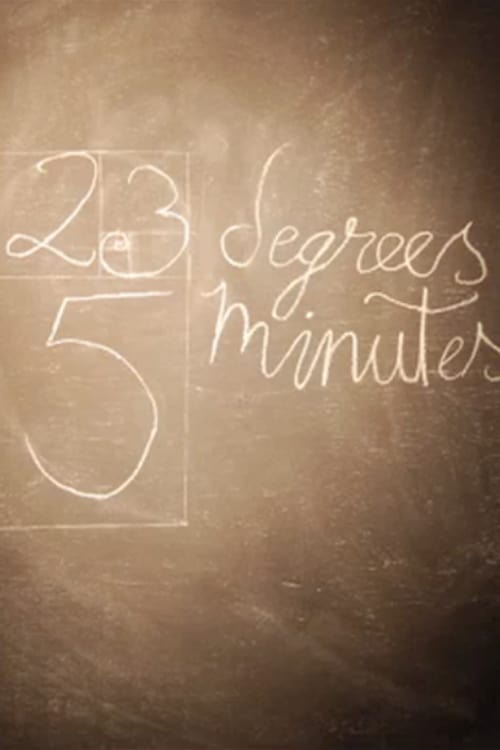 23 degrees
5 minutes